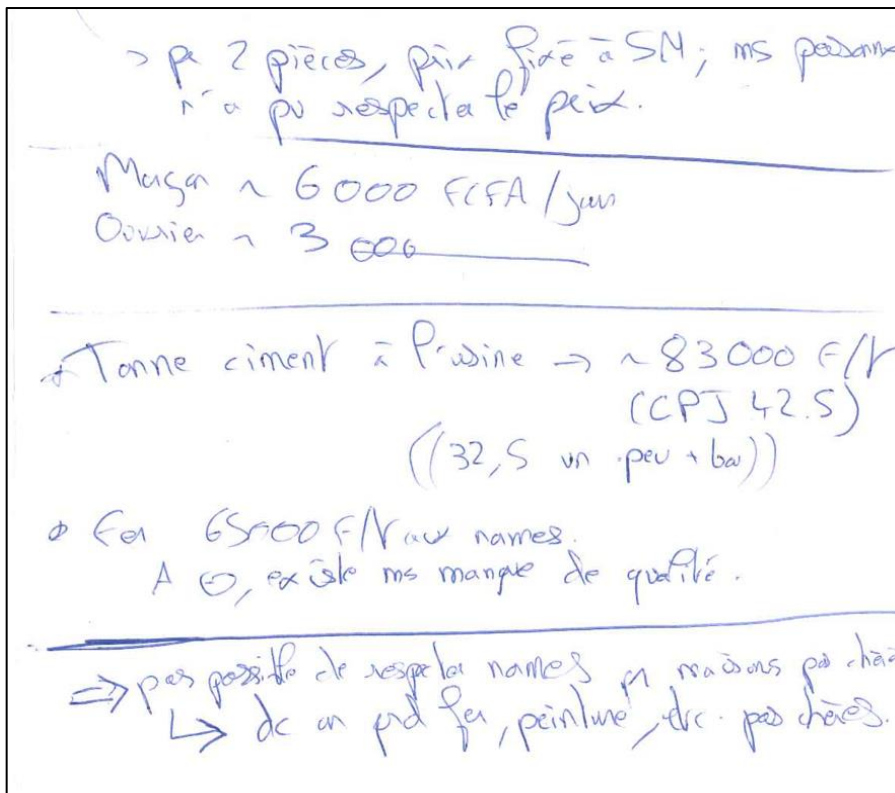 > pr 2 pièces, prix fixé à 5M ; ms personne
n'a pu respecter le prix.
Maçon ~ 6000 FCFA/jour
Ouvrier ~ 3 000
Tonne ciment à l'usine → ~83000 F/T
(CPJ 42.5)
((32,5 un peu + bas))
Fer 65000 F/T aux normes.
A ⊖, existe ms manque de qualité.
⇒ pas possible de respecter normes pr maisons pas chères
↳ dc on prd fer, peinture, etc. pas chères.